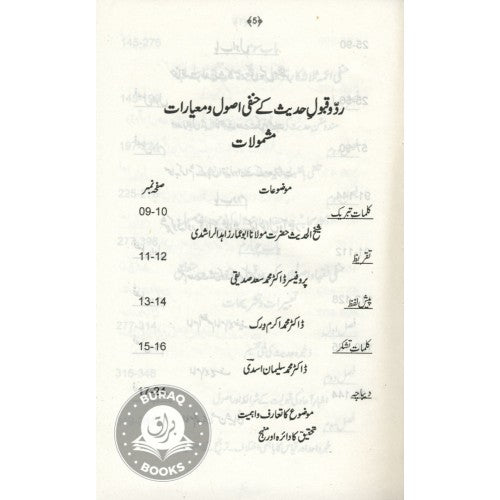 ﴿5﴾
ردّ و قبولِ حدیث کے حنفی اصول و معیارات
مشمولات
موضوعات صفحہ نمبر
کلمات تبریک 09-10
شیخ الحدیث حضرت مولانا ابو عمار زاہد الراشدی
تقریظ 11-12
پروفیسر ڈاکٹر محمد سعد صدیقی
پیش لفظ 13-14
ڈاکٹر محمد اکرم ورک
کلمات تشکر 15-16
ڈاکٹر محمد سلیمان اسدی
دیباچہ 17-24
موضوع کا تعارف و اہمیت
تحقیق کا دائرہ اور منہج
BURAQ
براق
BOOKS